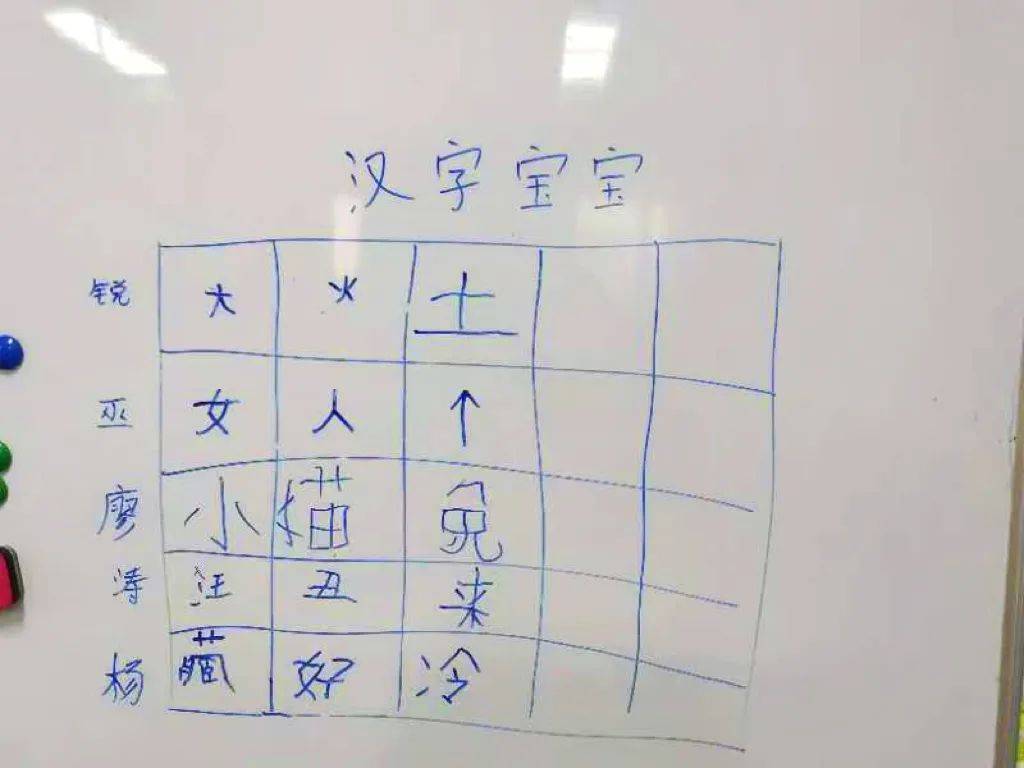 汉字宝宝
锐 大 火 土
巫 女 人 ↑
廖 小 猫 兔
涛 汪 丑 来
杨 藏 好 冷